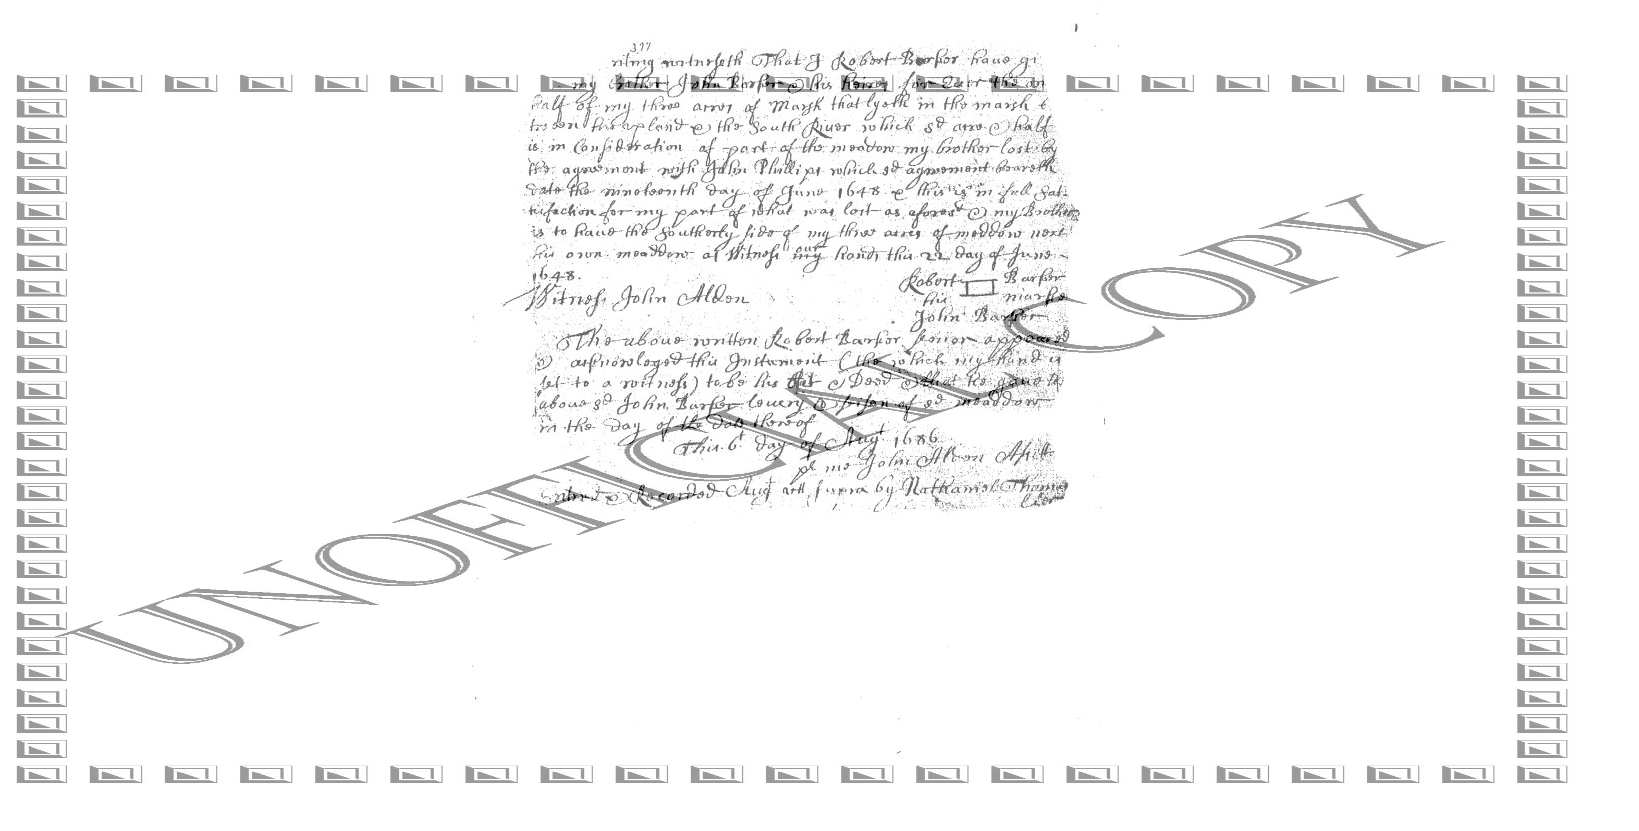 377
riting witnesseth That I Robert Barker have gi
my Brother John Barker & his heires for Ever the on
half of my three acres of Marsh that lyeth in the marsh b
tween the upland & the South River which sd acre & half
is in Consideration of part of the meadow my brother lost by
the agreement with John Phillips which sd agreement beareth
date the nineteenth day of June 1648 & this is in full sat
tisfaction for my part of what was lost as aforesd & my Brother
is to have the Southerly side of my three acres of meddow next
his own meaddow as Witness our hands this 22 day of June
1648.
Robert Barker
Witness John Alden
his marke
John Barker
The above written Robert Barker senior appeared
& acknowleged this Instument (the which my hand is
set to a witness) to be his Act & Deed & that he gave the
above sd John Barker levery & seisen of sd meaddow
in the day of the date thereof
This 6t day of Augt 1686
pr me John Alden Assistt
Entred & Recorded Augt att supra by Nathaniel Thomas
Cler
UNOFFICIAL COPY